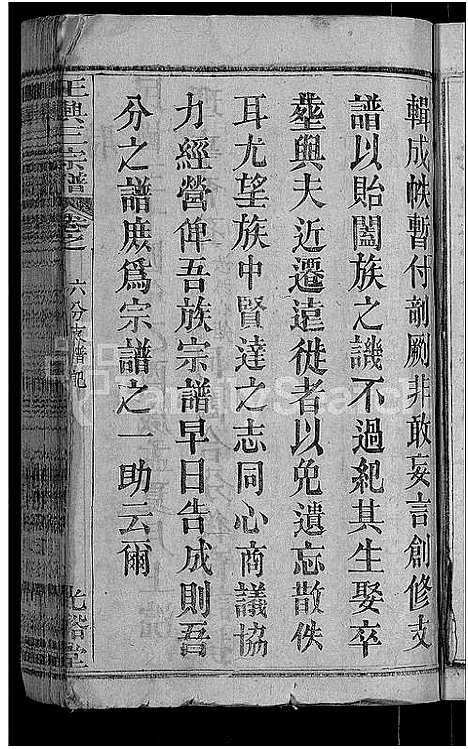 輯成帙暫付剞劂非敢妄言創修支
譜以貽闔族之譏不過紀其生娶卒
塟與夫近遷遠徙者以免遺忘散佚
耳尤望族中賢達之志同心商議協
力經營俾吾族宗譜早日告成則吾
分之譜庶爲宗譜之一助云爾
王興三宗譜
卷之一
六分支譜記
光裕堂
FamilySearch